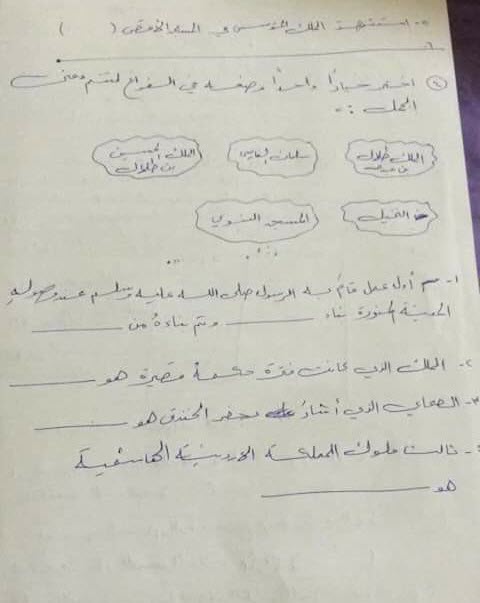 ٥- استشهد الملك المؤسس في المسجد الأقصى ( )
اختر خيارًا واحدًا وضعه في الفراغ لتتم معنى
الجمل :-
الملك طلال بن عبدالله
سلمان الفارسي
الملك الحسين بن طلال
النخيل
المسجد النبوي
١- أول عمل قام به الرسول صلى الله عليه وسلم عند وصوله
المدينة المنورة بناء ________ وتم بناءه من ________
٢- الملك الذي كانت فترة حكمه قصيرة هو ________
٣- الصحابي الذي أشار بحفر الخندق هو ________
٤- ثالث ملوك المملكة الأردنية الهاشمية
هو ________